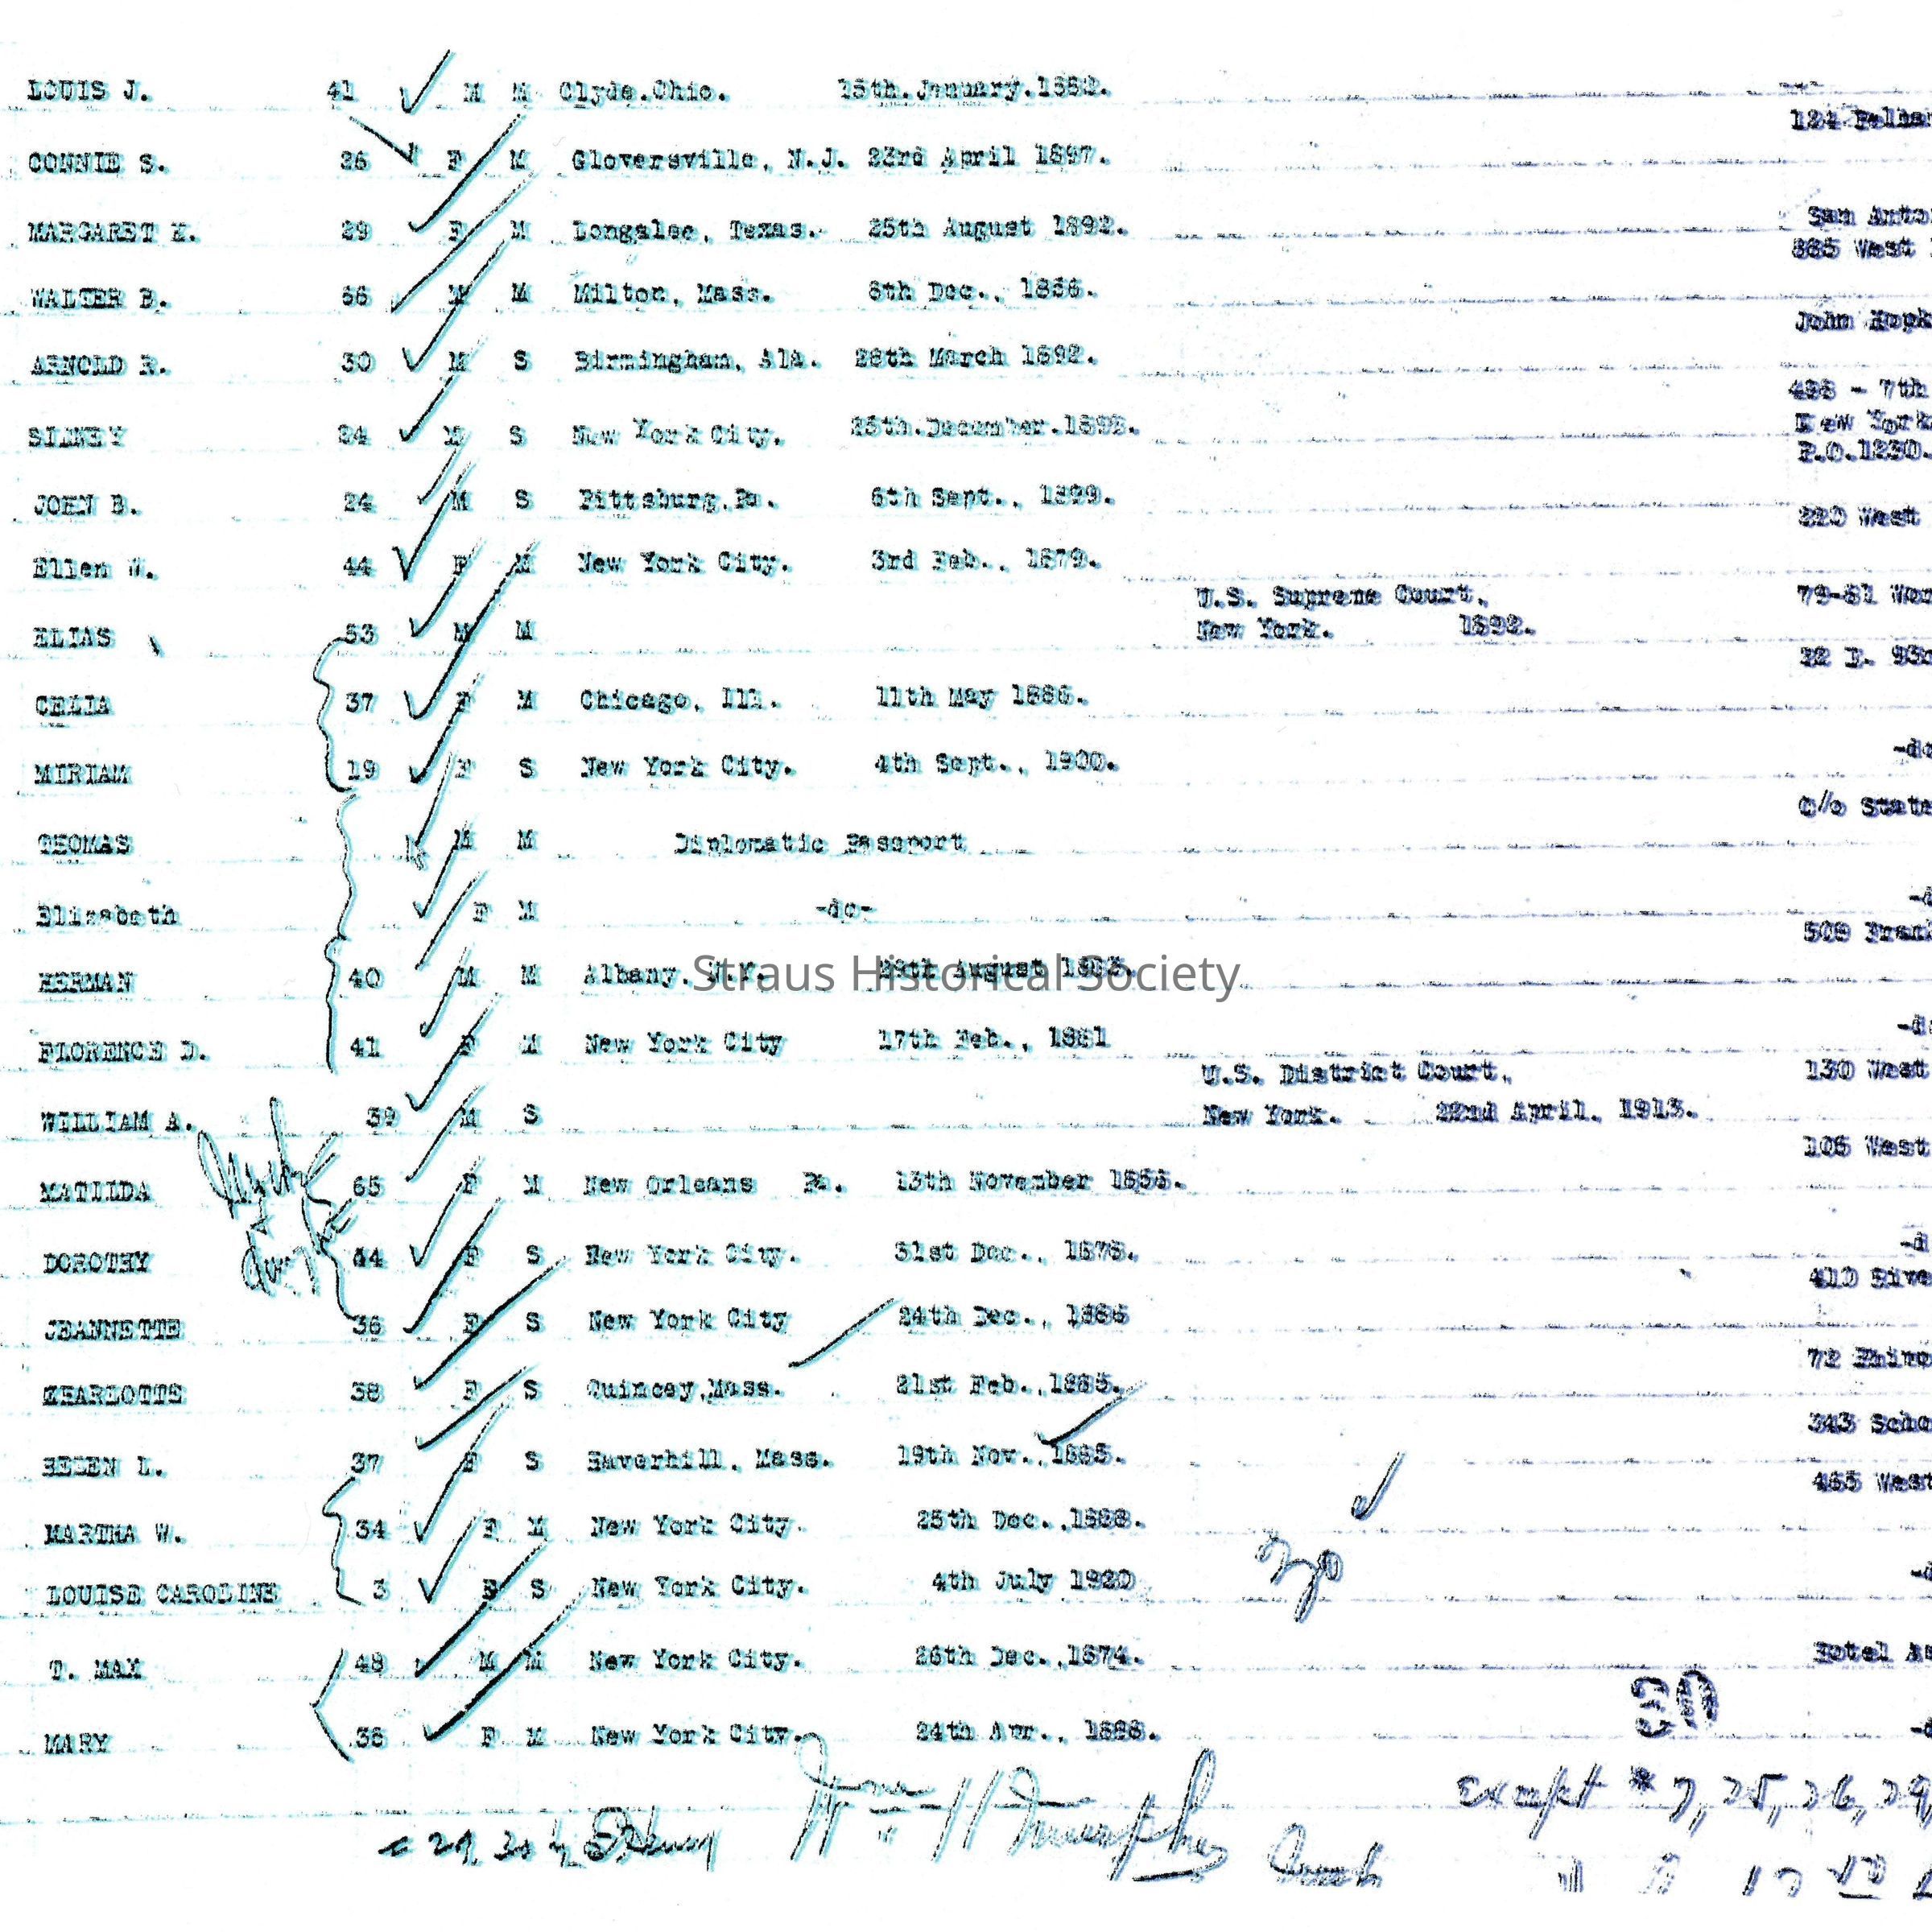 LOUIS J. 41 M M Clyde.Ohio. 15th.January.1882.
124 Pelham
CONNIE S. 26 F M Gloversville, N.J. 23rd April 1897.
San Anto
MARGARET 29 F M Longalee, Texas. 25th August 1892.
885 West
WALTER B. 66 M M Milton, Mass. 6th Dec., 1856.
John Hopk
ARNOLD R. 30 M S Birmingham, Ala. 28th March 1892.
498 - 7th
New York
SIDNEY 24 M S New York City. 25th.December.1898.
P.O.1230.
JOHN B. 24 M S Pittsburg.Pa. 6th Sept., 1899.
220 West
Ellen W. 44 F M New York City. 3rd Feb., 1879.
U.S. Supreme Court, 79-81 Wor
ELIAS 53 M M New York. 1892.
22 E. 93
CELIA 37 F M Chicago, Ill. 11th May 1886.
-do
MIRIAM 19 F S New York City. 4th Sept., 1900.
c/o State
THOMAS M M Diplomatic Passport
Elizabeth F M -do- -d
509 Fran
HERMAN 40 M M Albany. N.Y. August
Straus Historical Society
FLORENCE D. 41 F M New York City 17th Feb., 1881 -d
U.S. District Court, 130 West
WILLIAM A. 39 M S New York. 22nd April, 1913.
105 West
MATILDA 65 F M New Orleans Pa. 13th November
DOROTHY 44 F S New York City. 31st Dec., 1878. -d
410 Rive
JEANNETTE 36 F S New York City 24th Dec., 1886
72
CHARLOTTE 38 F S Quincey,Mass. 21st Feb.,1885.
343 Scho
HELEN L. 37 F S Haverhill, Mass. 19th Nov.,1885.
465 West
MARTHA W. 34 F M New York City. 25th Dec.,1888.
LOUISE CAROLINE 3 F S New York City. 4th July 1920 -d
T. MAX 48 M M New York City. 26th Dec.,1874. Hotel As
30
MARY 36 F M New York City. 24th Apr., -d
except 7, 25, 26, 29
Wm H Murphy